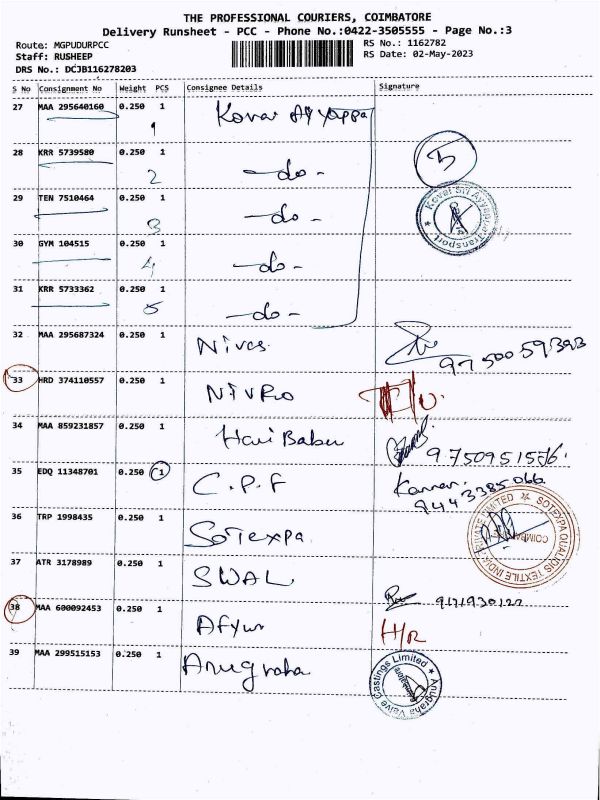 THE PROFESSIONAL COURIERS, COIMBATORE
Delivery Runsheet - PCC - Phone No.:0422-3505555 - Page No.:3
Route: MGPUDURPCC RS No.: 1162782
Staff: RUSHEEP RS Date: 02-May-2023
DRS No.: DCJB116278203
S No Consignment No Weight PCS Consignee Details Signature
27 MAA 295640160 0.250 1 Kovai Ayyappa
1
28 KRR 5739580 0.250 1 -do-
2 5
29 TEN 7510464 0.250 1 -do-
3 Kovai Sri Ayyappa Transport
30 GYM 104515 0.250 1 -do-
4
31 KRR 5733362 0.250 1 -do-
5
32 MAA 295687324 0.250 1 Nivas
9750059393
33 HRD 374110557 0.250 1 NIVRO
34 MAA 859231857 0.250 1 Hari Babu
9750951576
35 EDQ 11348701 0.250 1 C.P.F Kannan
9443385066
36 TRP 1998435 0.250 1 Sotexpa SOTEXPA QUALIDIS TEXTILE INDIA PRIVATE LIMITED
COIMBATORE
37 ATR 3178989 0.250 1 SWAL
38 MAA 600092453 0.250 1 H/R
39 MAA 299515153 0.250 1 Anugraha Anugraha Valve Castings Limited